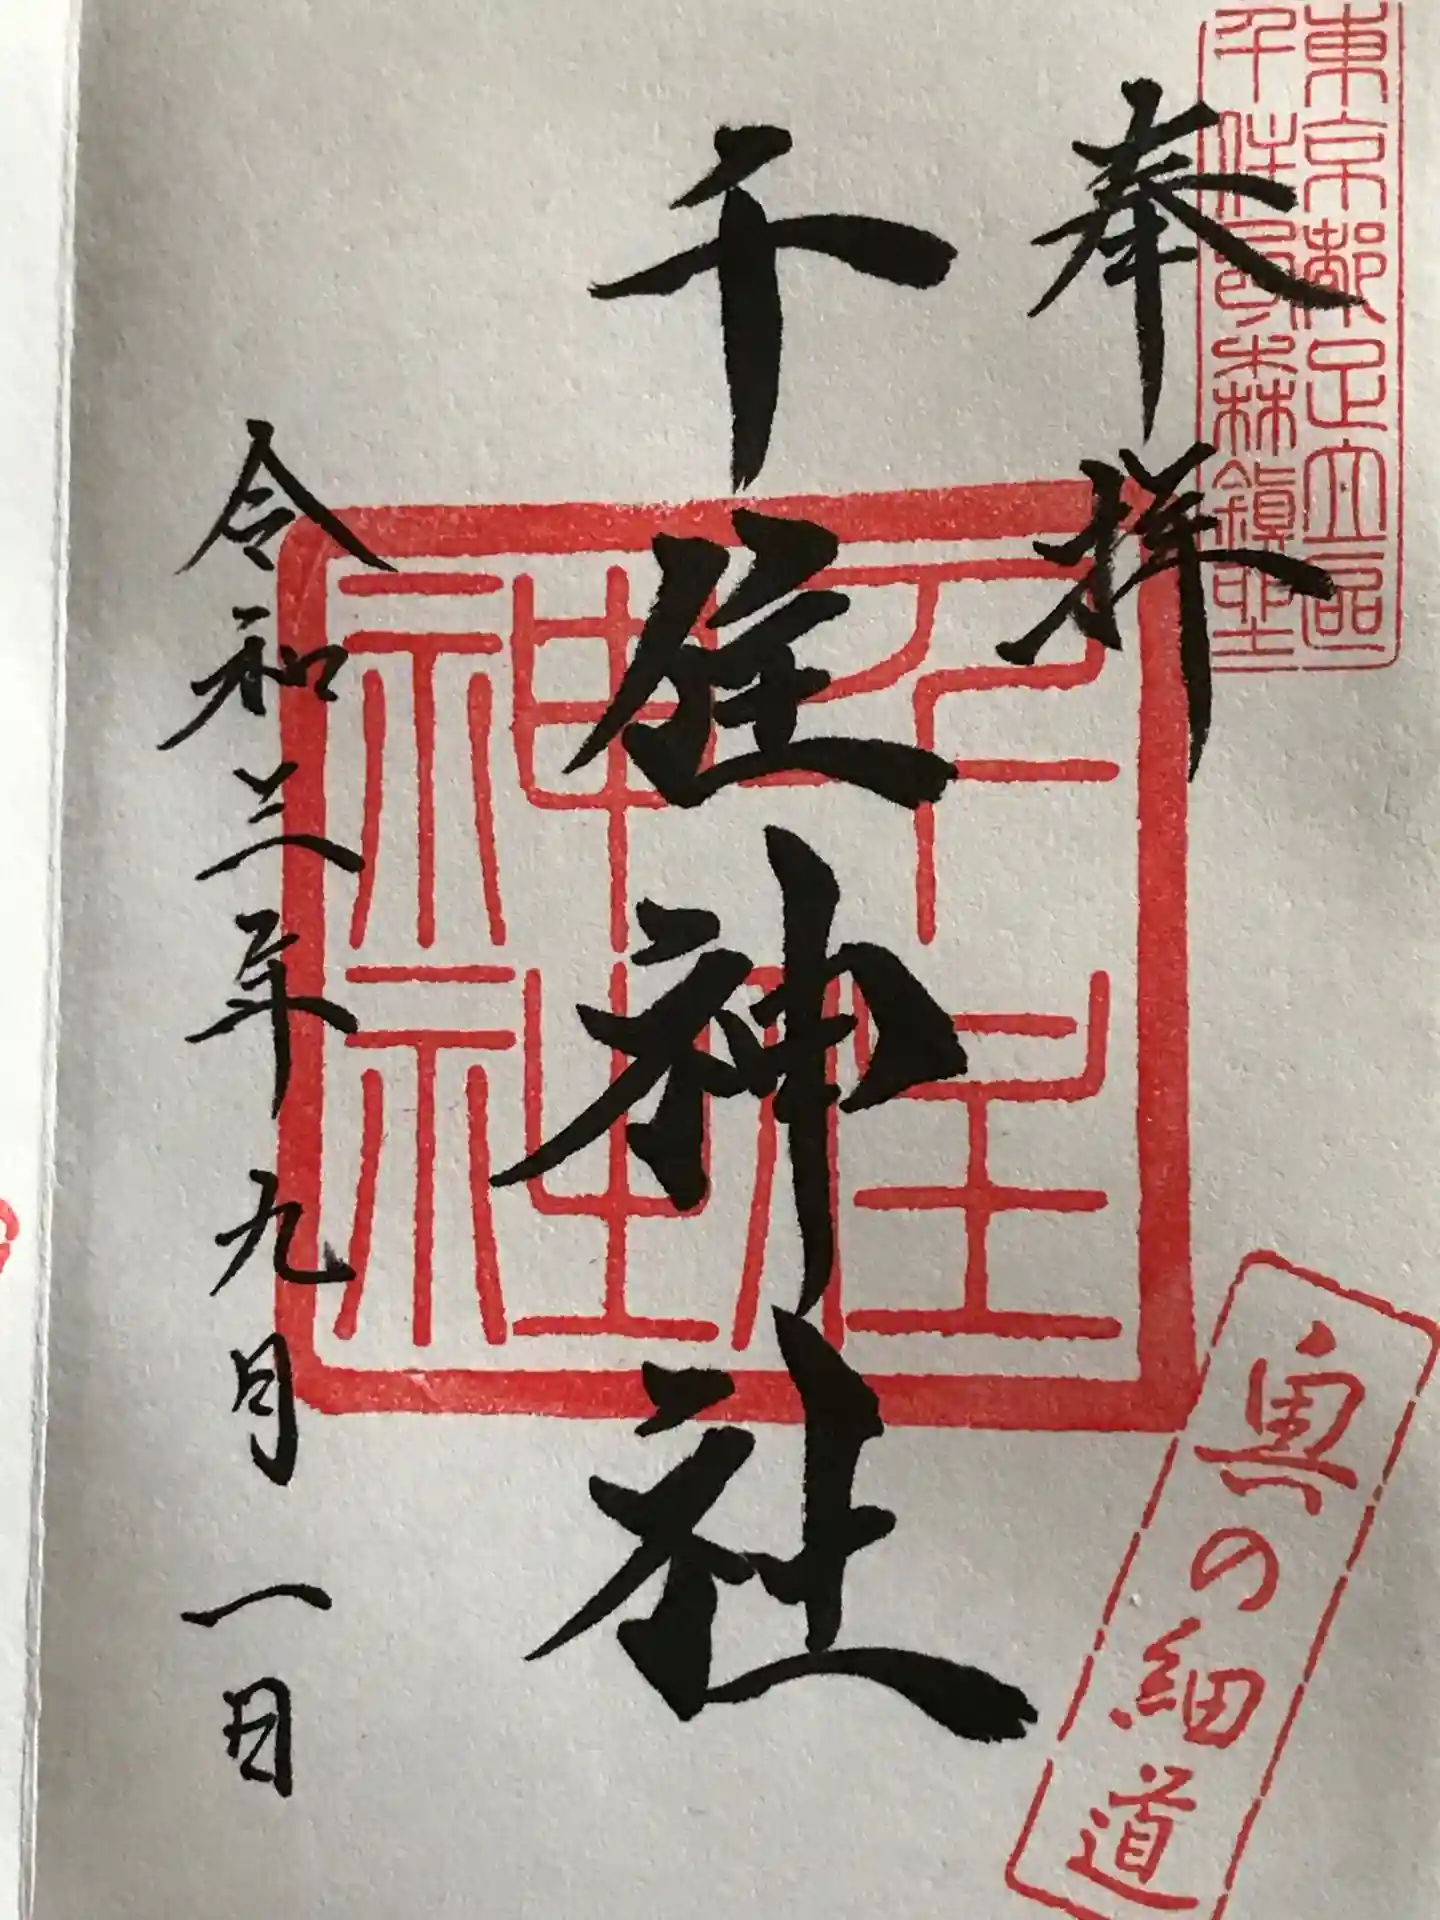 東京都足立区
千住宮元町鎮座
奉拝
千住神社
千住
神社
奥の細道
令和三年九月一日